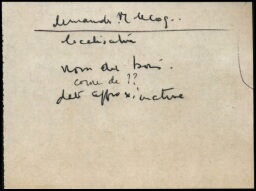 demander M. Lecoq..
localisation
nom du bois.
corne de ??
date approximative